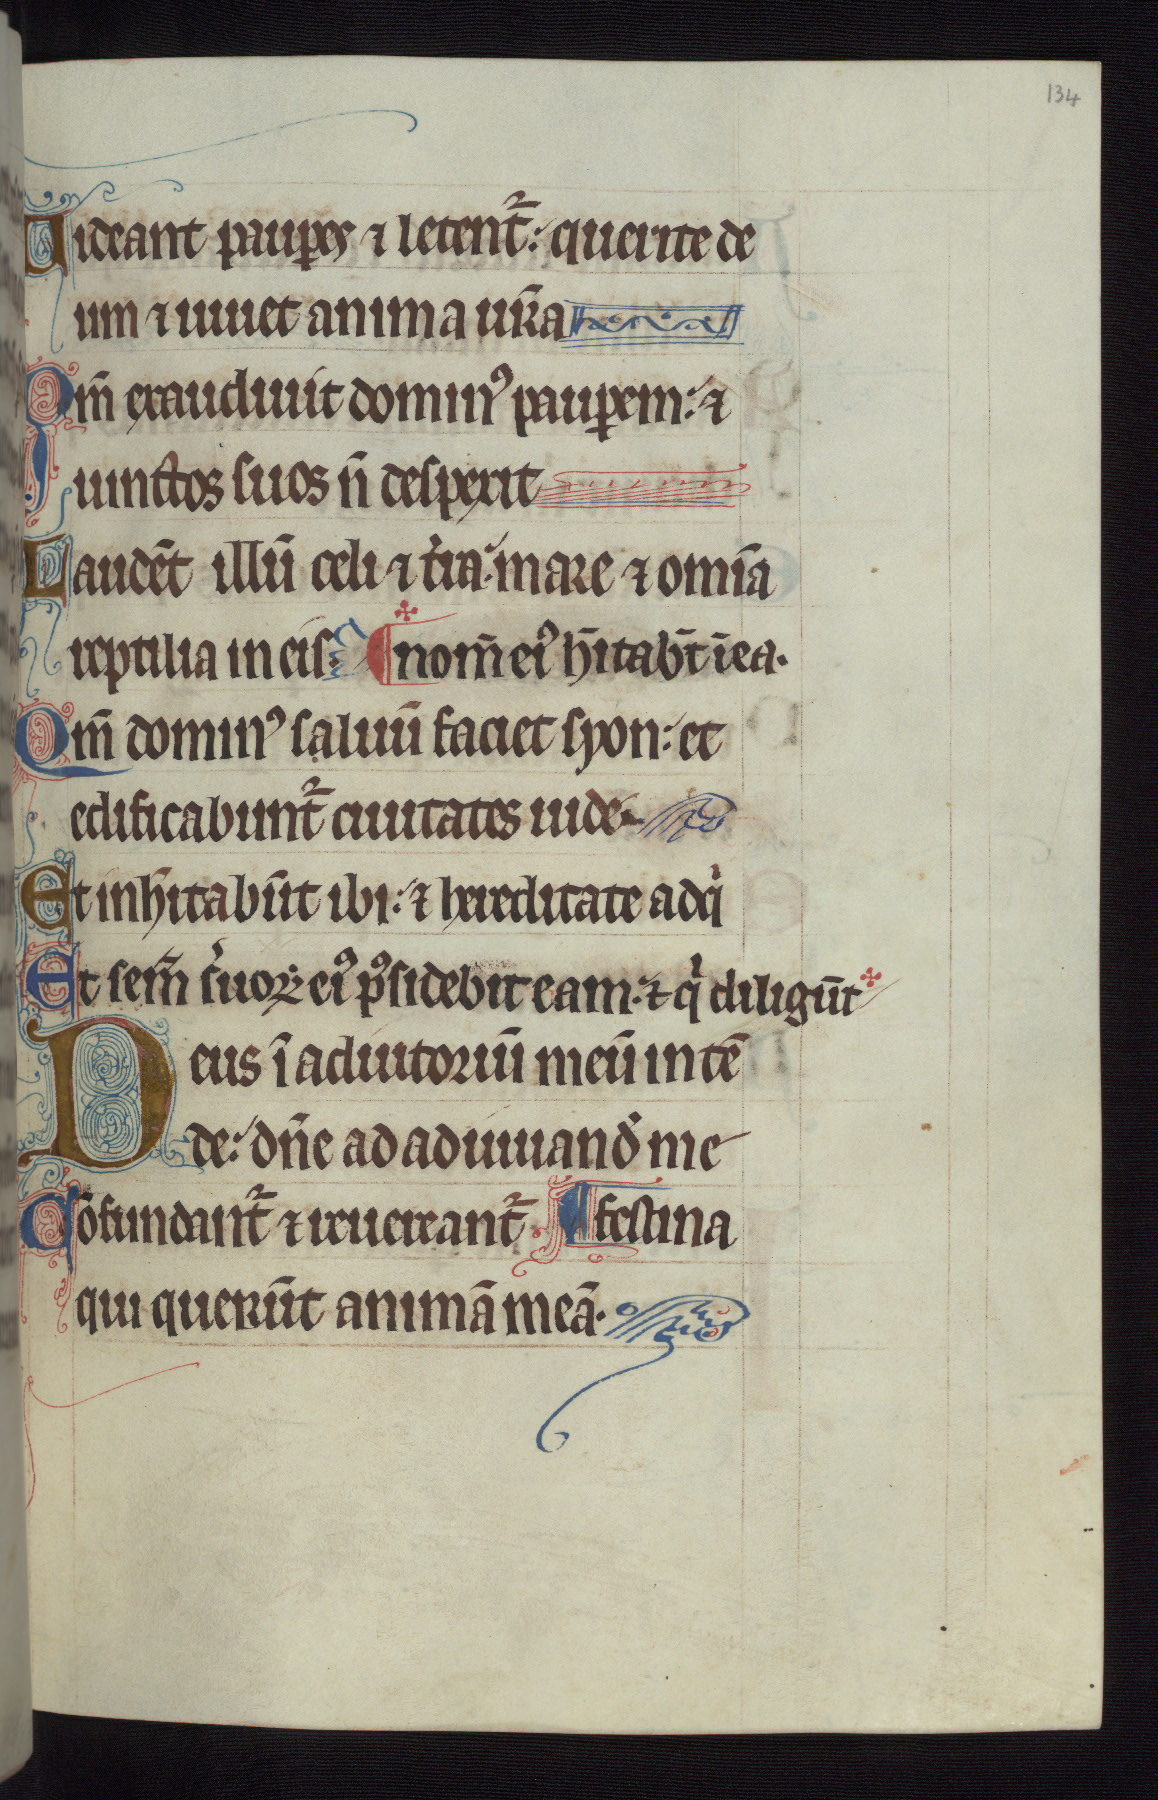 134
Uideant paup̱es ⁊ letent᷑: querite de
um ⁊ uiuet anima ur̄a
Qm̄ exaudiuit dominꝰ paup̱em: ⁊
Uinctos suos n̄ despexit
Laudēt illū celi ⁊ t̓ra: mare ⁊ om̄ia
reptilia in eis: ¶ nom̄ eiꝰ hi̅tab̄t i̅ ea.
Qm̄ dominꝰ saluū faciet syon: et
edificabunt᷑ ciuitates iude
Et inhi̅tabūt ibi: ⁊ hereditate adqͥ
Et sem̄ s̓uoꝝ eiꝰ pꝰsidebit eam: ⁊ qͥ diligūt
Deus ī adiutoriū meū inte̅
de: dn̄e ad adiuuand̓ me
Cōfundant᷑ ⁊ reuereant᷑ ¶ festina
qui querūt animā meā.